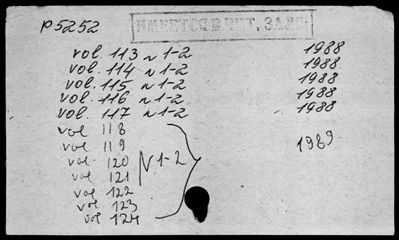 P5252
ИМЕЕТСЯ В ЧИТ. ЗАЛЕ
vol. 113 N 1-2 1988
vol. 114 N 1-2 1988
vol. 115 N 1-2 1988
vol. 116 N 1-2 1988
vol. 117 N 1-2 1988
vol 118
vol 119 1989
vol. 120 N 1-2
vol 121
vol 122
vol 123
vol 124